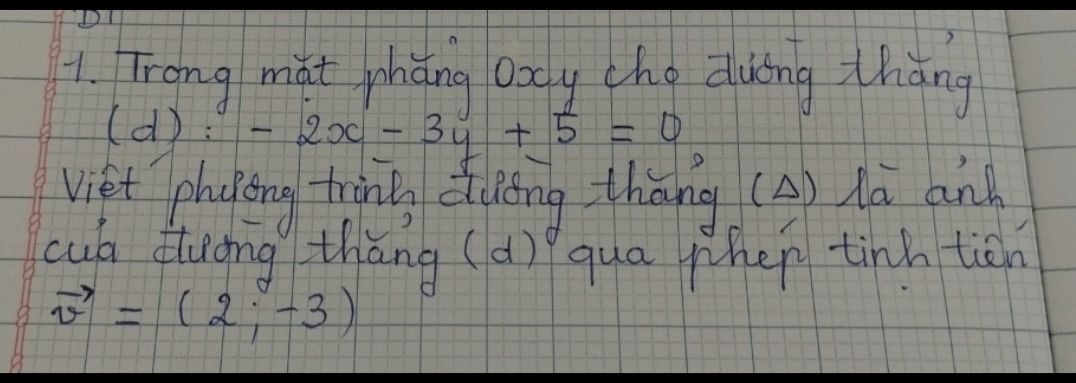 D1
1. Trong mặt phẳng Oxy cho đường thẳng
(d): - 2x - 3y + 5 = 0
Viết phương trình đường thẳng (Δ) là ảnh
của đường thẳng (d) qua phép tịnh tiến
v⃗ = (2; -3)